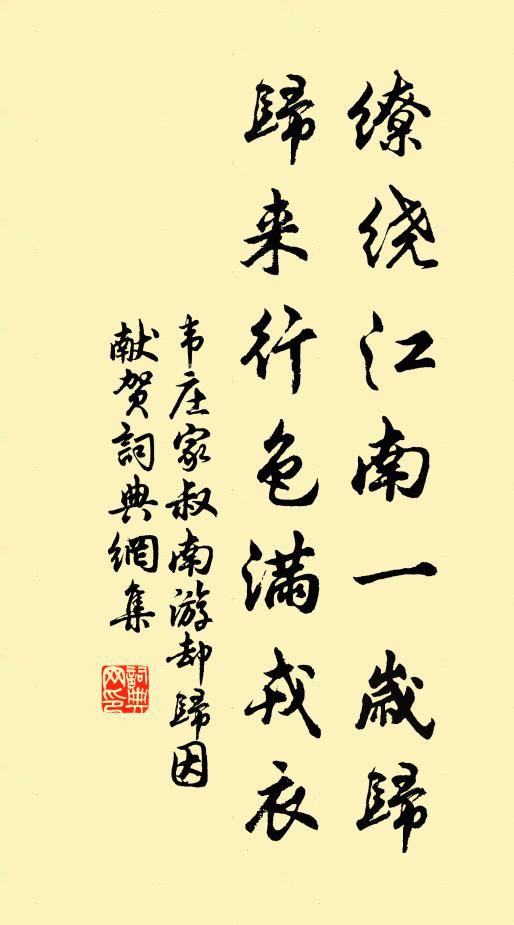 缭绕江南一歲歸
歸来行色滿戎衣
韦庄家叔南游却歸因
献贺詞典網集
詞典网印